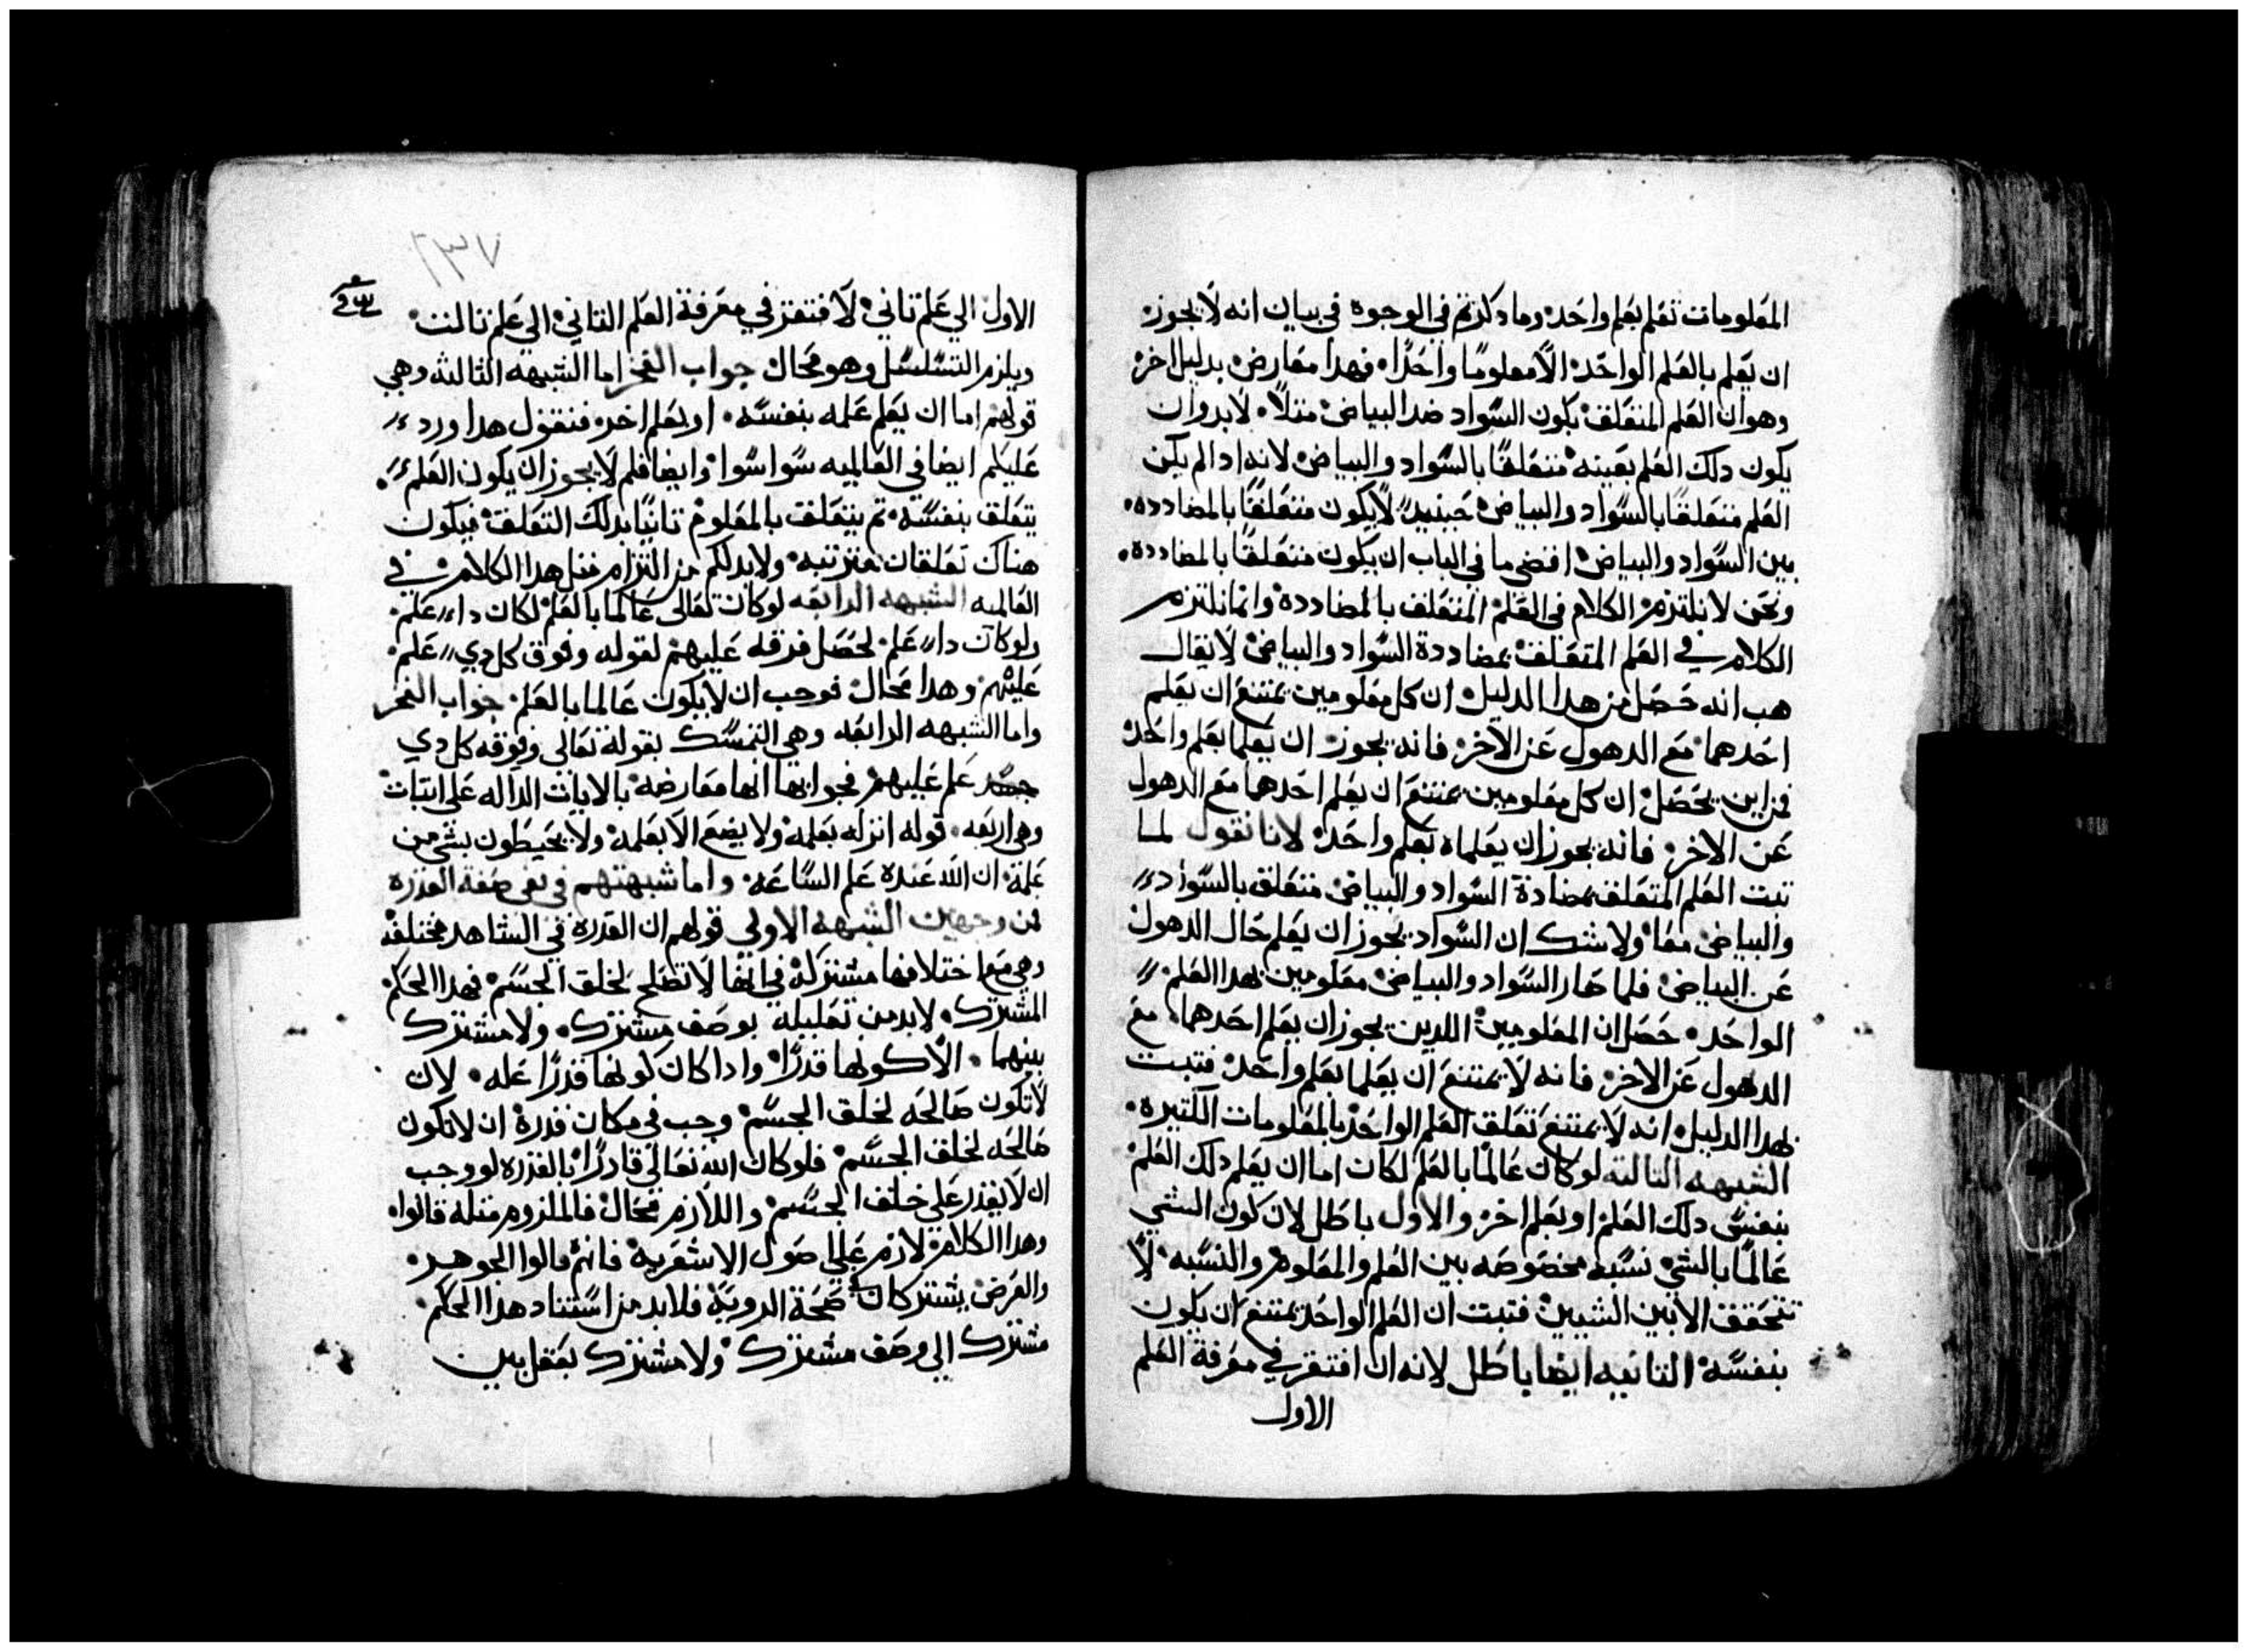 المعلومات تعلم بعلم واحد. وما دكرتم في الوجوه في بيان انه لا يجوز
ان يعلم بالعلم الواحد. الا معلومًا واحدًا. فهدا معارض بدليل اخر
وهو ان العلم المتعلق بكون السواد ضد البياض مثلاً. لابد وان
يكون دلك العلم بعينه متعلقًا بالسواد والبياض لانه ادا لم يكن
العلم متعلقًا بالسواد والبياض حينيدٍ لا يكون متعلقًا بالمضادده.
بين السواد والبياض اقضى ما في الباب ان يكون متعلقًا بالمضادده.
ونحن لا نلتزم الكلام في العلم المتعلق بالمضاددة وانما نلتزم
الكلام في العلم المتعلق بمضاددة السواد والبياض لا يقال
هب انه حصل من هدا الدليل ان كل معلومين يمتنع ان يعلم
احدهما مع الدهول عن الاخر فانه يجوز ان يعلما بعلم واحد
فمن اين يحصل ان كل معلومين يمتنع ان يعلم احدهما مع الدهول
عن الاخر. فانه يجوز ان يعلماه بعلم واحد. لانا نقول لما
تبت العلم المتعلق بمضادة السواد والبياض متعلق بالسواد
والبياض معا ولا شك ان السواد يجوز ان يعلم حال الدهول
عن البياض فلما صار السواد والبياض معلومين بهدا العلم
الواحد. حصل ان المعلومين اللدين يجوز ان يعلم احدهما. مع
الدهول عن الاخر. فانه لا يمتنع ان يعلما بعلم واحد. فتبت
بهدا الدليل انه لا يمتنع تعلق العلم الواحد بالمعلومات الكتيره.
الشبهه التالته لو كان عالمًا بالعلم لكان اما ان يعلم دلك العلم
بنفس دلك العلم او بعلم اخر والاول باطل لان كون الشي
عالمًا بالشي نسبه مخصوصه بين العلم والمعلوم والنسبه لا
تتحقق الا بين الشيين فتبت ان العلم الواحد يمتنع ان يكون
بنفسه التانيه ايضا باطل لانه ان افتقر في معرفة العلم
الاول
٢٣٧
الاول الي علم تاني. لافتقر في معرفة العلم التاني الي علم تالت.
ويلزم التسلسل وهو محال جواب الفخر اما الشبهه الثالثه وهي
قولهم اما ان يعلم علمه بنفسه. او بعلم اخر. فنقول هدا ورد
عليكم ايضا في العالميه سوا سوا وايضا فلم لا يجوز ان يكون العلم
يتعلق بنفسه. تم يتعلق بالمعلوم تانيًا بدلك التعلق فيكون
هناك تعلقان مترتبه. ولابد لكم من التزام متل هدا الكلام في
العالميه الشبهه الرابعه لو كان تعالى عالمًا بالعلم لكان دا علم.
ولو كان دا علم. لحصل فوقه عليم لقوله وفوق كل دي علم.
عليم. وهدا محال فوجب ان لا يكون عالما بالعلم. جواب الفخر
واما الشبهه الرابعه وهي التمسك بقوله تعالى وفوقه كل دي
علم عليهم فجوابها انها معارضه بالايات الداله على اتبات
وهي اربعه. قوله انزله بعلمه ولا يضع الا بعلمه. ولا يحيطون بشي من
علمه. ان الله عنده علم الساعه. واما شبهتهم في نفي صفة القدره
فمن وجهين الشبهه الاولي قولهم ان القدره في الشاهد مختلفه
وهي مع اختلافها مشتركه في انها لا تصلح لخلق الجسم فهدا الحكم
المشترك. لابد من تعليله بوصف مشترك. ولا مشترك
بينهما. الا كونها قدرًا. وادا كان كونها قدرًا عله. لان
لا تكون صالحه لخلق الجسم وجب في مكان قدرة ان لا تكون
صالحه لخلق الجسم فلو كان الله تعالى قادرًا بالقدره لوجب
ان لا يقدر على خلق الجسم واللازم محال فالملزوم متله قالوا.
وهدا الكلام لازم على اصول الاشعريه فانهم قالوا الجوهر.
والعرض يشتركان صحة الرويه فلابد من استناد هدا الحكم.
مشترك الي وصف مشترك ولا مشترك يعقل بين